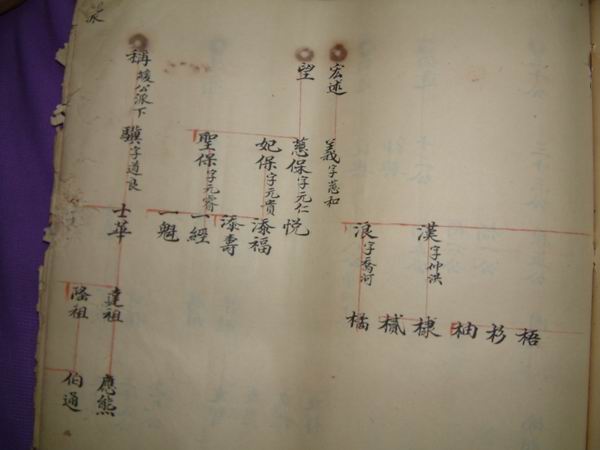 宏述
義字慈和
漢字仲洪
浪字喬河
梧
杉
柚
棣
樲
橘
望
蕙保字元仁
悦
妃保字元貴
添福
添壽
聖保字元睿
一經
一魁
稱矮公派下
驥字道良
士華
達祖
隆祖
應熊
伯通
派